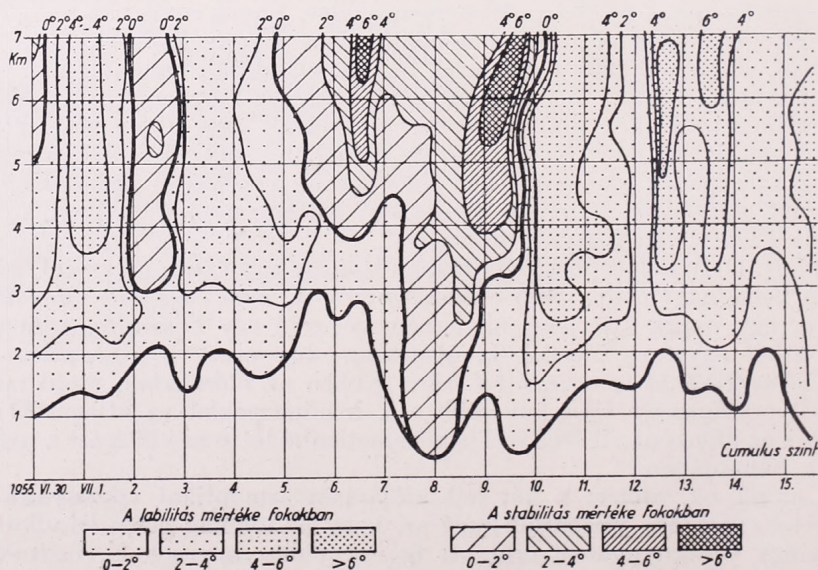 0° 2° 4° 4° 2° 0° 0° 2° 2° 0° 2° 4° 6° 4° 4° 6° 0° 4° 2° 4° 6° 4°
7
Km
6
5
4
3
2
1
Cumulus szint
1955. VI. 30. VII. 1. 2. 3. 4. 5. 6. 7. 8. 9. 10. 11. 12. 13. 14. 15.
A labilitás mértéke fokokban A stabilitás mértéke fokokban
0–2° 2–4° 4–6° >6° 0–2° 2–4° 4–6° >6°